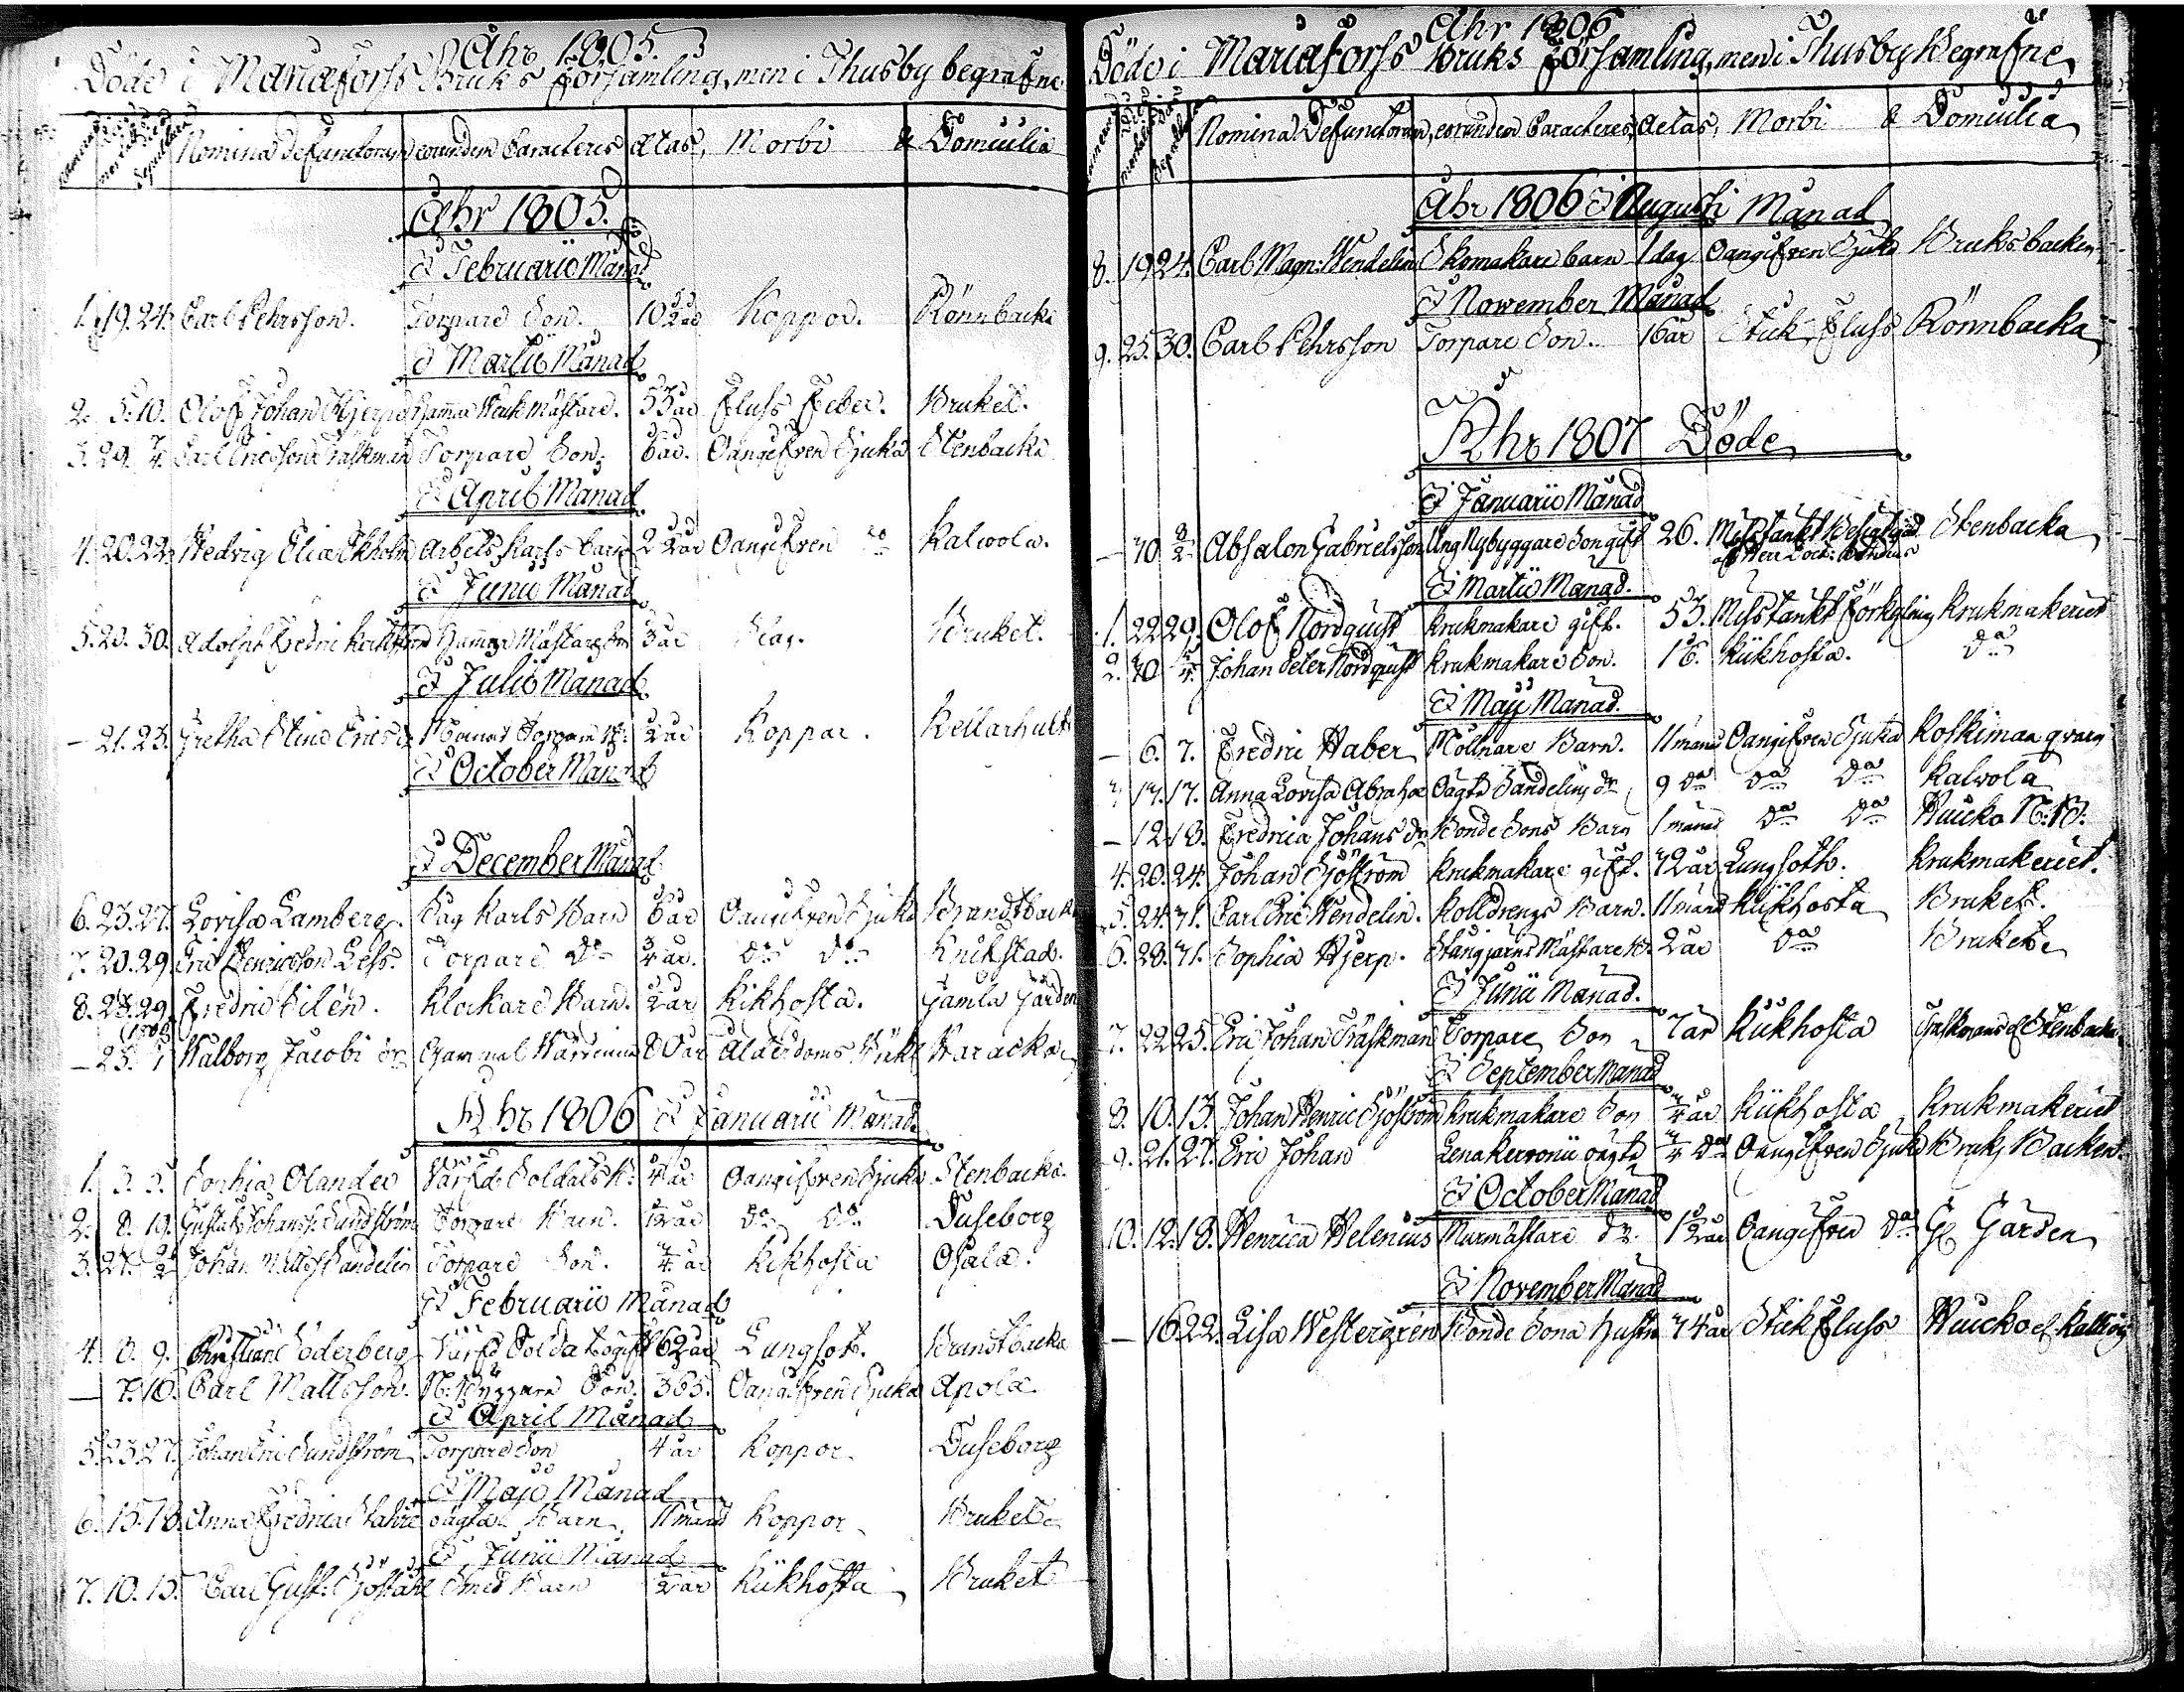 Åhr 1805.
Döde i Mariæforss Bruks Församling, men i Thusby begrafne
Nomina defunctorum eorundem Caracteres ætas, Morbi & Domicilia
Åhr 1805.
I Februarii Månad
1. 19. 24. Carl Pehrsson. Torpare Son. Koppor. Rönnbacka
I Martii Månad
2. 5. 10. Olof Johan Hjerpe Hammar Werkmästare. 55 år Fluss Feber. Bruket.
3. 29. Carl Ericsson Träskman Torpare Son. 6 år. Oangifven Sjuka Stenbacka
I April Månad
4. 20. 22. Hedvig Elia Ekholm Arbets Karls barn Oangifven do Kalwola.
I Junii Månad
5. 20. 30. Adolph Fredric Hammar Mästare Son 3 år Slag. Bruket.
I Julii Månad
— 21. 23. Gretha Stina Erics dr Koppor. Kellarhult
I October Månad
I December Månad
6. 23. 27. Lovisa Lamberg. Karls Barn 6 år Oangifven Sjuka Brandtbacka
7. 20. 29. Eric Henricsson Less. Torpare do do do Knikstad.
8. 23. 29. Fredric Silén. Klockare Barn. Kikhosta. Gamla Gården
(1806)
— 25. 1 Walborg Jacobi dr Gammal 80 år Ålderdoms Waracka
Åhr 1806 I Januarii Månad
1. 3. 5. Sophia Olander Värfd. Soldats B: Oangifven Sjuka. Stenbacka.
2. 8. 19. Gustaf Johanss: Sundström Torpare Barn. do do Duseborg
3. 27. Johan Matts Sandelin Torpare Son. Kikhosta Osala.
I Februarii Månad
4. 8. 9. Christian Söderberg Värfd Soldat ogift 62 år Lungsot. Brandtbacka
— 7. 10. Carl Mattsson. N: Byggare Son. 36 Oangifven Sjuka Apola.
I April Månad
5. 23. 27. Johan Eric Sundström Torpare Son 4 år Koppor. Duseborg
I Maii Månad
6. 15. 18. Anna Fredrica oägta Barn 11 mand Koppor Bruket
I Junii Månad
7. 10. 15. Carl Gust: Sjöstahl Smed Barn Kikhosta Bruket
Åhr 1806
Döde i Mariæforss Bruks Församling, men i Thusby Begrafne
Nomina Defunctorum, eorundem Caracteres, Aetas, Morbi & Domicilia
Åhr 1806 I Augusti Månad
8. 19. 24. Carl Magn: Wendelin Skomakare barn 1 dag Oangifven Sjuka Bruksbacken
I November Månad
9. 25. 30. Carl Pehrsson Torpare Son. 16 år Stick-Fluss Rönnbacka
Åhr 1807 Döde
I Januarii Månad
— 30 8/2 Absalon Gabrielsson Ung Nybyggare Son gift 26. Misstänkt Stenbacka
I Martii Månad.
1. 22. 29. Olof Nordquist Krukmakare gift. 55. Misstänkt Förkylning Krukmakeriet
2. 30 Johan Peter Nordquist Krukmakare Son. 16. Kikhosta. do
I Maji Månad.
— 6. 7. Fredric Haber Möllnare Barn. 11 mand Oangifven Sjuka Koskimaa qvarn
3 17. 17. Anna Lovisa Abraha Oägta Sandelins dr 9 do do do Kalvola
— 12 18. Fredrica Johans dr Bonde Sons Barn 1 månad do do Huicko N:o
4. 20. 24. Johan Sjöström Krukmakare gift. 72 år Lungsoth. Krukmakeriet.
5. 24. 31. Carl Eric Wendelin. Kolldrengs Barn. 11 månd Kikhosta Bruket.
6. 28. 31. Sophia Hjerp. Stångjerns Mästare B. 2 år do Bruket
I Junii Månad.
7. 22 25. Eric Johan Träskman Torpare Son 7 år Kikhosta Träskmans el Stenbacka
I September Månad
8. 10. 13. Johan Henric Sjöström Krukmakare Son Kikhosta Krukmakeriet
9. 21. 27. Eric Johan Lena oägta Oangifven Sjuka Bruks Backen.
I October Månad
10. 12. 18. Henrica Helenius Murmästare dr Oangifven do Gården
I November Månad
— 16. 22. Lisa Westergren Bonde Sona Hustru 74 år Stick Fluss Huicko el.